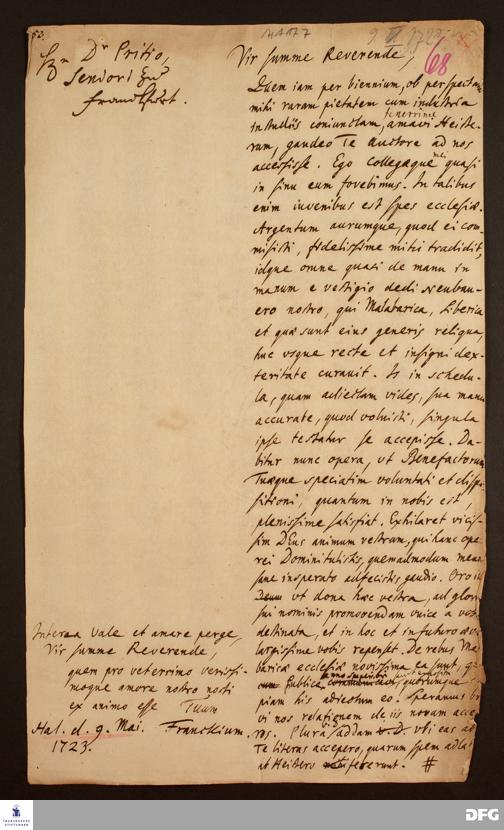 53.
Dn Dr Pritio,
Seniori
Francofurt.
9. V 1723
68
Vir summe Reverende,
Quem iam per biennium, ob perspectam
mihi raram pietatem cum industria
in studiis coniunctam, tenerrime amavi Heiste-
rum, gaudeo Te auctore ad nos
accessisse. Ego Collegaeque mei quasi
in sinu eum fovebimus. In talibus
enim iuvenibus est spes ecclesiae.
Argentum aurumque, quod ei com-
misisti, fidelissime mihi tradidit,
idque omne quasi de manu in
manum e vestigio dedi Neubau-
ero nostro, qui Malabarica, Siberica
et quae sunt eius generis reliqua,
huc usque recte et insigni dex-
teritate curauit. Is in schedu-
la, quam adiectam vides, sua manu
accurate, quod voluisti, singula
ipse testatur se accepisse. Da-
bitur nunc opera, vt Benefactorum
Tuaeque speciatim voluntati et dispo-
sitioni, quantum in nobis est,
plenissime satisfiat. Exhilaret vicis-
sim DEus animum vestrum, qui hanc ope
rei Domini tulistis, quemadmodum me
sane insperato adfecistis gaudio. Oro
Deum vt dona haec vestra, ad glor
sui nominis promovendam unice a vob
destinata, et in hoc et in futuro
largissime vobis repenset. De rebus Ma
baricae ecclesiae novissima ea sunt, q
publice anno superiori communicavi, quorumque
piam his adiectum eo. Speramus
vi nos relationem de iis novam acce
ros. Plura addam vbi eas ad
Te literas accepero, quarum spem
ab Heistero fecerunt. #
Interea vale et amare perge,
Vir summe Reverende,
quem pro veterrimo verissi-
moque amore nostro nosti
ex animo esse Tuum
Hal. d. 9. Mai. Franckium.
1723.
FRANCKESCHE STIFTUNGEN
DFG